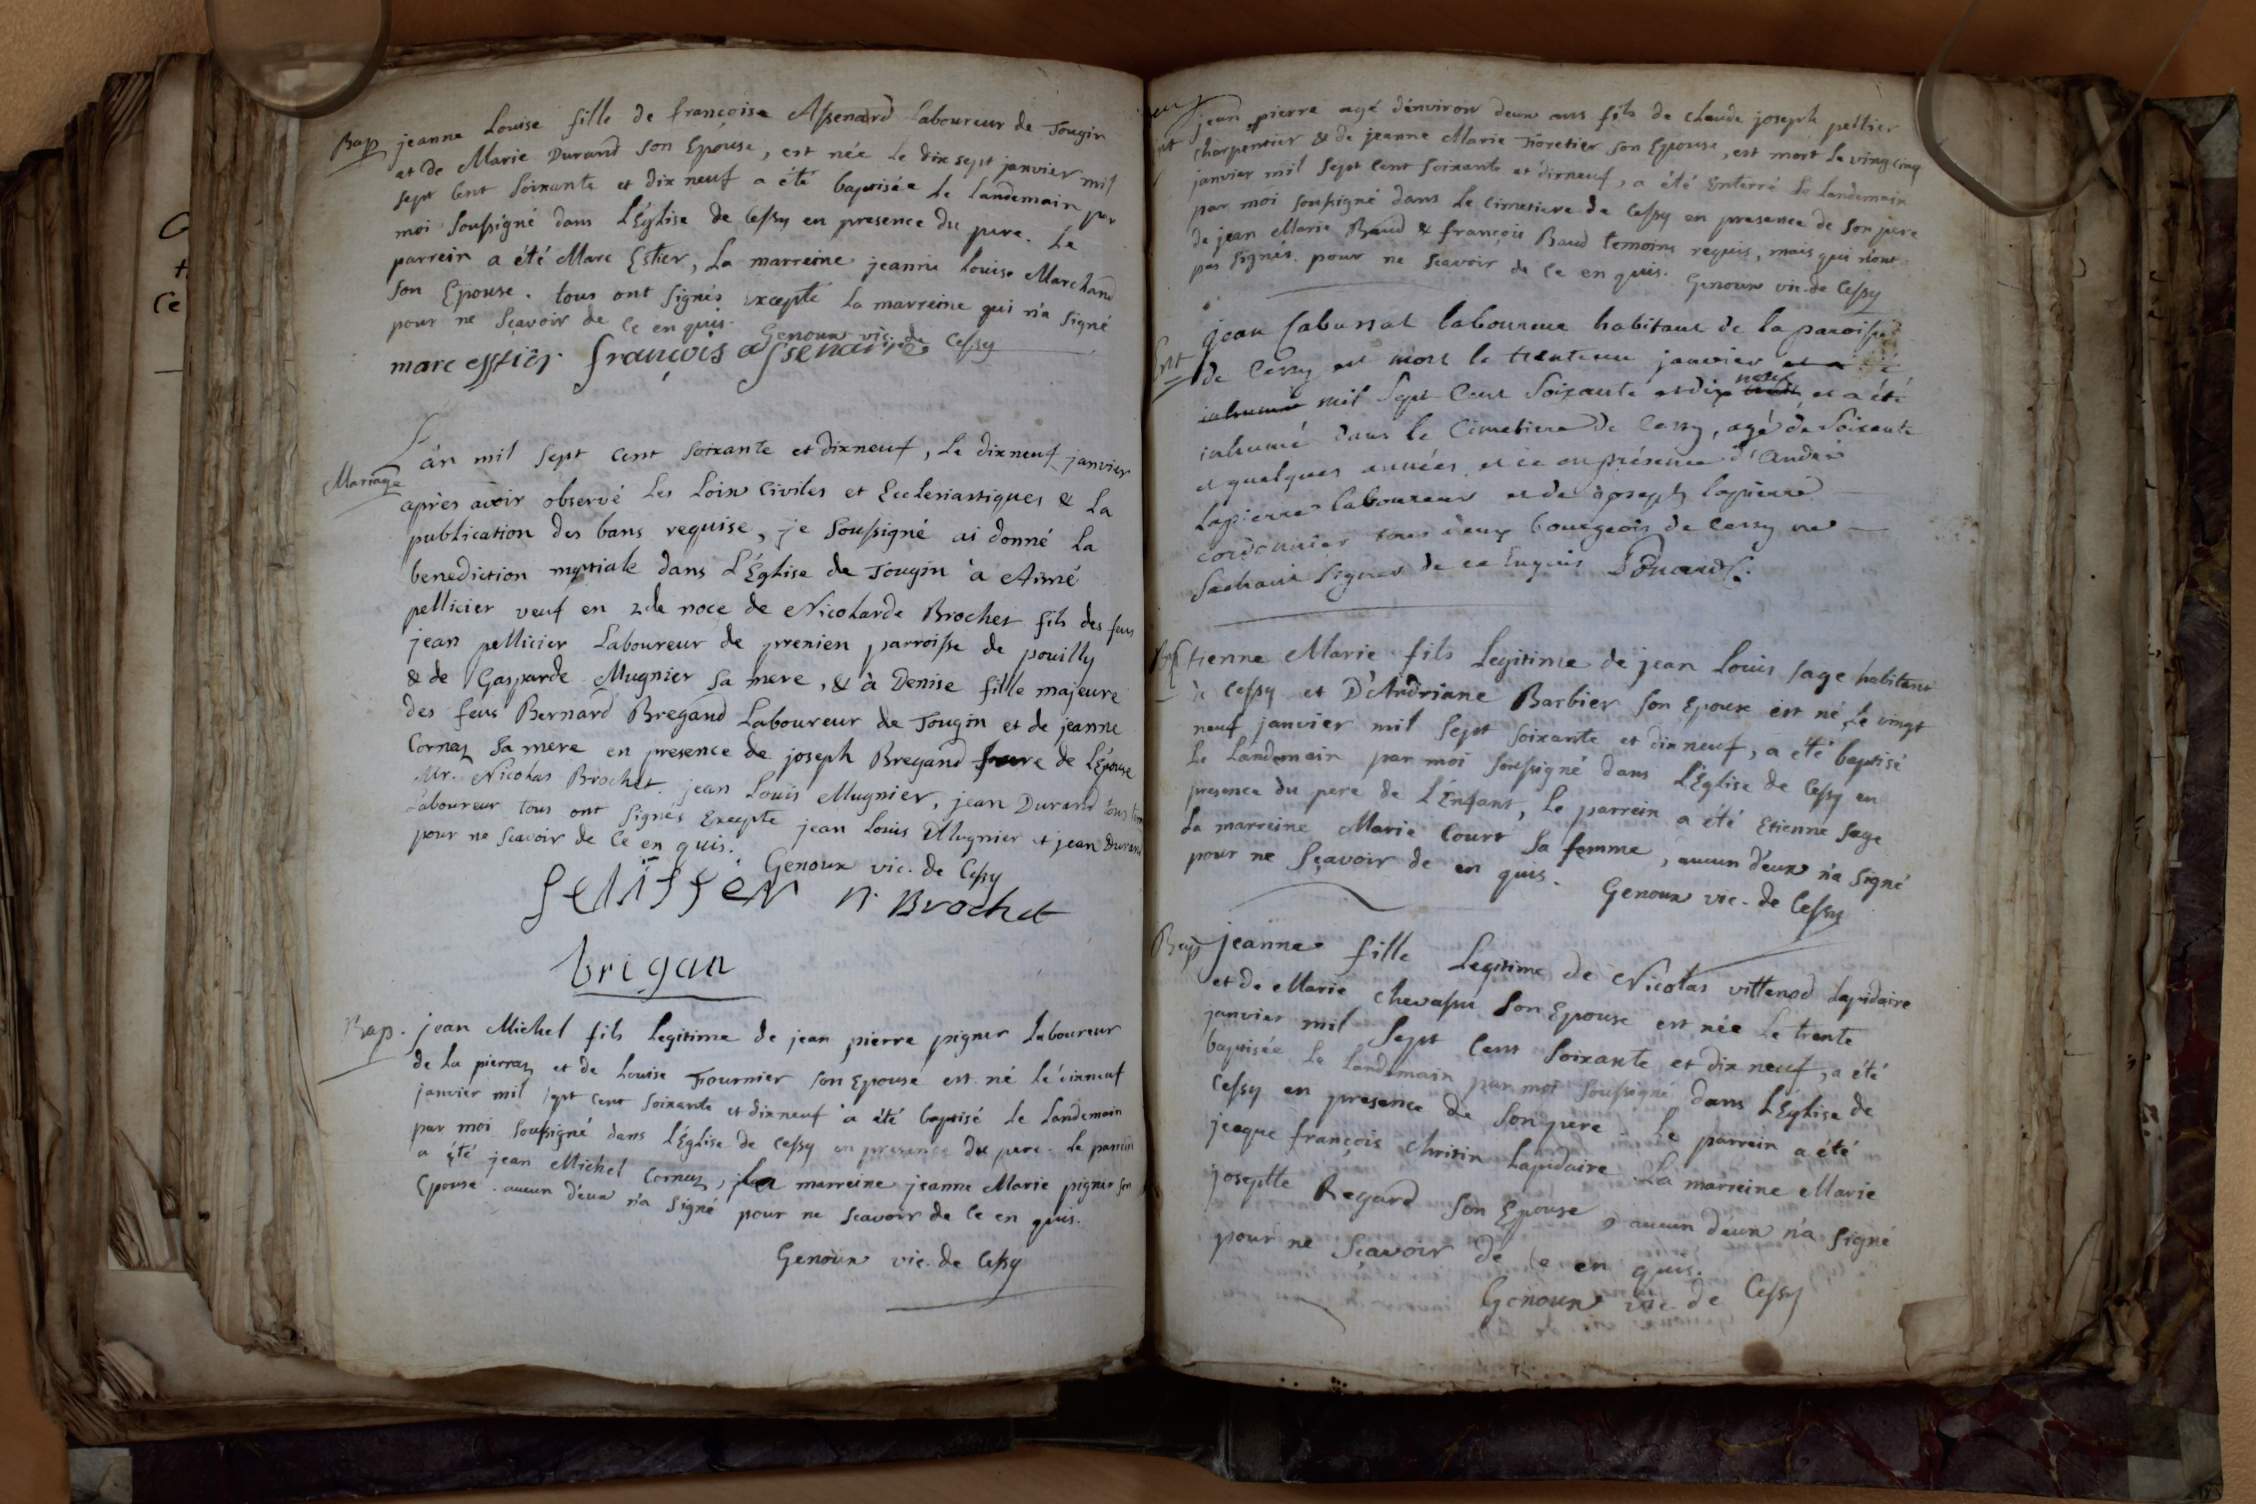 Bap
jeanne Louise fille de françoise Assenard Laboureur de Tougin
et de Marie Durand son Epouse, est née le dix sept janvier mil
sept Cent soixante et dix neuf a été baptisée le Landemain par
moi soussigné dans L'Église de Cessy en presence du pere. Le
parrein a été Marc Estier, La marreine jeanne Louise Marchand
son Epouse. tous ont signés excepté La marreine qui n'a signé
pour ne sçavoir de ce en quis. Genoux vic. de Cessy
marc esstier françois assenard
Mariage
L'an mil sept cent soixante et dixneuf, le dixneuf janvier
après avoir observé Les Loix Civiles et Ecclesiastiques & La
publication des bans requise, je soussigné ai donné La
benediction nuptiale dans L'Église de Tougin à Aimé
pellicier veuf en 2de noce de Nicolarde Brochet fils des feus
jean pellicier Laboureur de prenien parroisse de pouilly
& de Gasparde Mugnier sa mere, & à Denise fille majeure
des feus Bernard Bregand Laboureur de Tougin et de jeanne
Cornaz sa mere en presence de joseph Bregand frere de L'Épouse
Mr. Nicolas Brochet. jean Louis Mugnier, jean Durand tous
Laboureur tous ont signés Excepté jean Louis Mugnier et jean Durand
pour ne sçavoir de ce en quis.
Genoux vic. de Cessy
N. Brochet
brigan
Bap.
jean Michel fils Legitime de jean pierre pigner Laboureur
de La pierraz et de Louise Fournier son Epouse est né le dixneuf
janvier mil sept cent soixante et dixneuf a été baptisé le Landemain
par moi soussigné dans L'Église de Cessy en presence du pere. Le parrein
a été jean Michel Cornaz, La marreine jeanne Marie pigner son
Epouse. aucun d'eux n'a signé pour ne sçavoir de ce en quis.
Genoux vic. de Cessy
jean pierre agé d'environ deux ans fils de Claude joseph peltier
Charpentier & de jeanne Marie Foretier son Epouse, est mort le vingcinq
janvier mil sept cent soixante et dixneuf, a été Enterré le landemain
par moi soussigné dans le cimetiere de Cessy en presence de son pere
de jean Marie Baud & françois Baud temoins requis, mais qui n'ont
pas signés pour ne sçavoir de ce en quis. Genoux vic. de Cessy
Ent
jean Cabussat laboureur habitant de la paroisse
de Cessy est mort le trenteun janvier et a été
inhumé mil sept Cent soixante et dix neuf et a été
inhumé dans le Cimetiere de Cessy, agé de soixante
et quelques années et ce en présence d'André
Lapierre laboureur et de joseph lapierre
cordonnier tous deux bourgeois de Cessy ne
sachant signer de ce Enquis
Bap
Etienne Marie fils Legitime de jean Louis sage habitant
à Cessy et D'Andriane Barbier son Epouse est né le vingt
neuf janvier mil sept soixante et dixneuf, a été baptisé
le Landemain par moi soussigné dans L'Église de Cessy en
presence du pere de L'Enfant, Le parrein a été Etienne sage
La marreine Marie Court sa femme, aucun d'eux n'a signé
pour ne sçavoir de en quis. Genoux vic. de Cessy
Bap
jeanne fille Legitime de Nicolas villenod Lapidaire
et de Marie Chevassu son Epouse est née Le trente
janvier mil sept cent soixante et dix neuf, a été
baptisée Le Landemain par moi soussigné dans L'Église de
Cessy en presence de son pere. Le parrein a été
jacque françois Christin Lapidaire La marreine Marie
josephte Regard son Epouse, aucun d'eux n'a signé
pour ne sçavoir de ce en quis.
Genoux vic. de Cessy